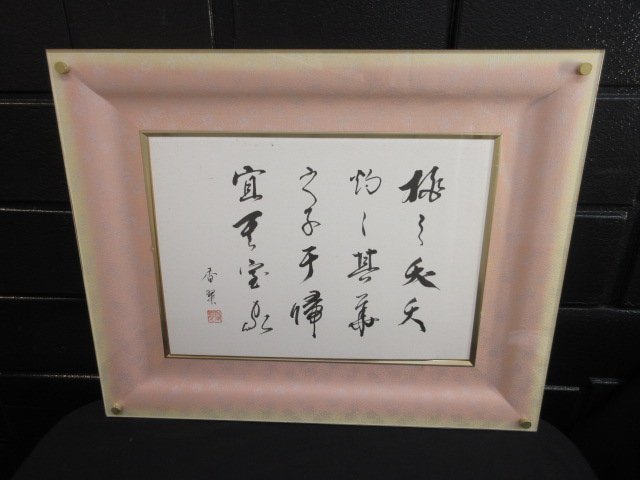 桃之夭夭
灼々其華
之子于帰
宜其室家
香